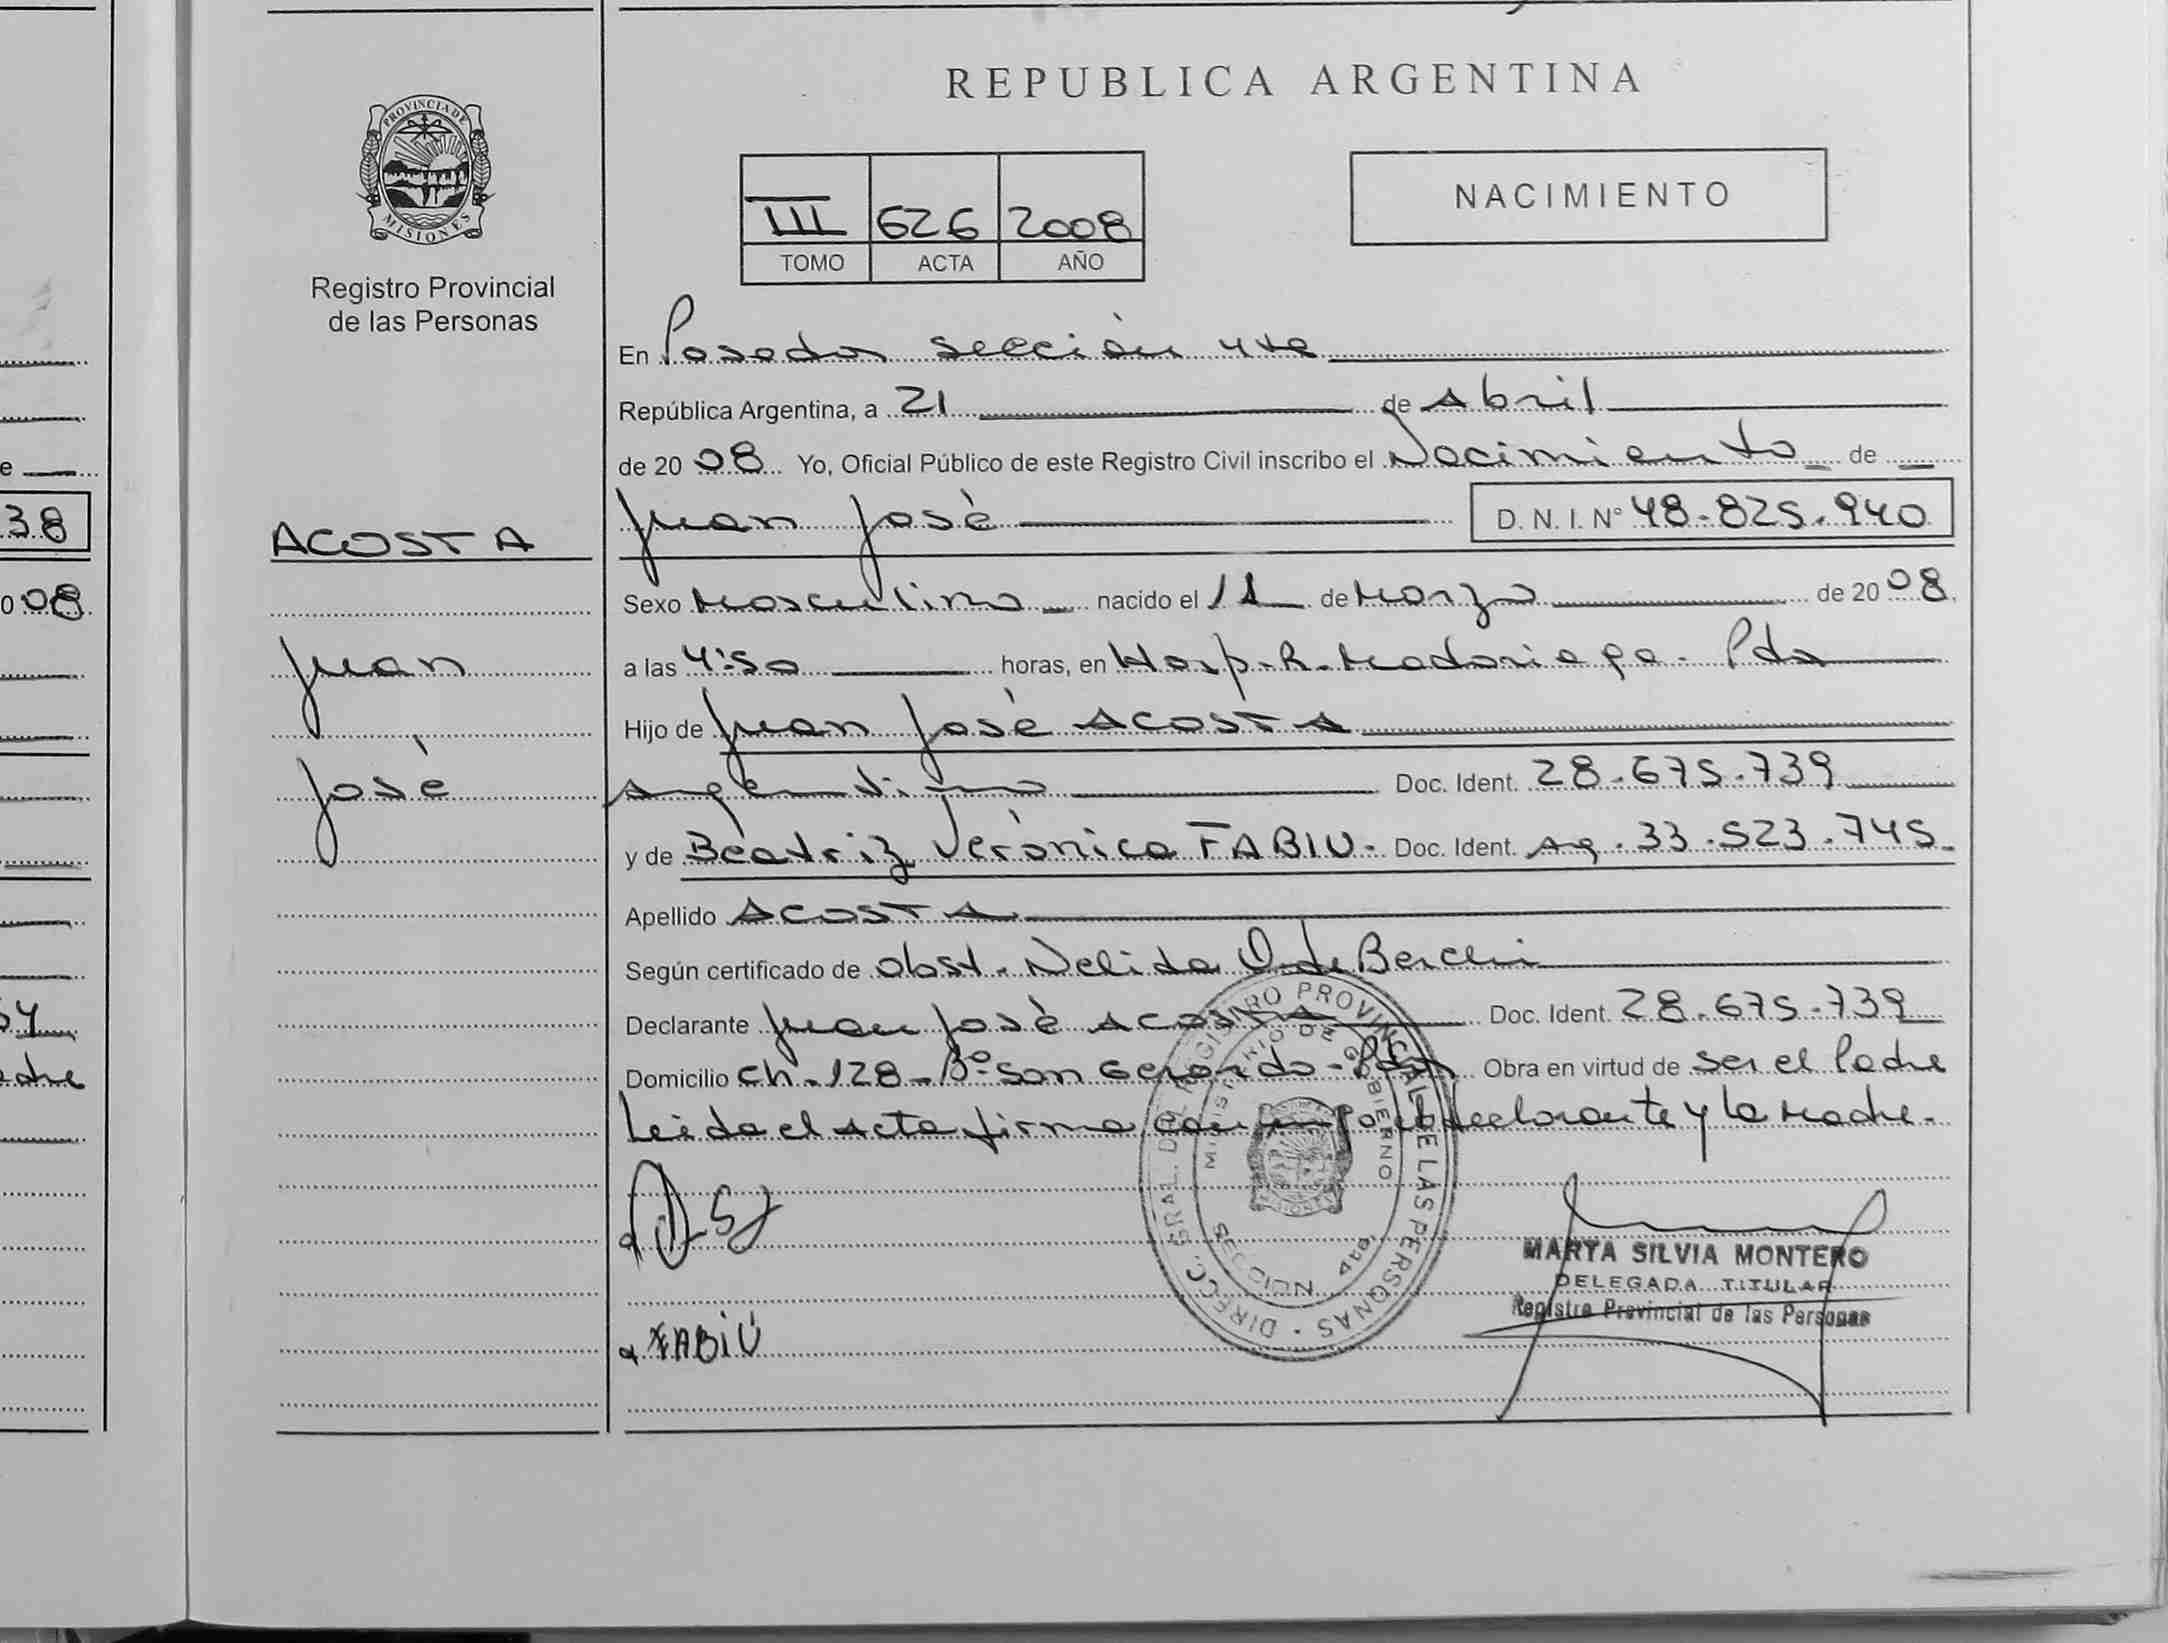 REPUBLICA ARGENTINA
PROVINCIA DE
MISIONES
Registro Provincial
de las Personas
NACIMIENTO
III 626 2008
TOMO ACTA AÑO
En Posadas sección 4ta
República Argentina, a 21 de Abril
de 2008 Yo, Oficial Público de este Registro Civil inscribo el Nacimiento de
ACOSTA
Juan José D. N. I. N° 48.825.940
Sexo Masculino nacido el 11 de Marzo de 2008
Juan
a las 4:50 horas, en Hosp. R. Madariaga. Pdas
Hijo de Juan José ACOSTA
José
Argentino Doc. Ident. 28.675.739
y de Beatriz Verónica FABIU. Doc. Ident. Ag. 33.523.745
Apellido ACOSTA
Según certificado de obst. Nelida O. de Berchi
Declarante Juan José ACOSTA Doc. Ident. 28.675.739
Domicilio Ch. 128 - B° San Gerardo - Pdas Obra en virtud de ser el Padre
Leida el Acta firma conmigo el declarante y la Madre.
DIRECC. GRAL. DEL REGISTRO PROVINCIAL DE LAS PERSONAS
MINISTERIO DE GOBIERNO
MARTA SILVIA MONTERO
DELEGADA TITULAR
Registro Provincial de las Personas
FABIÚ
38
008